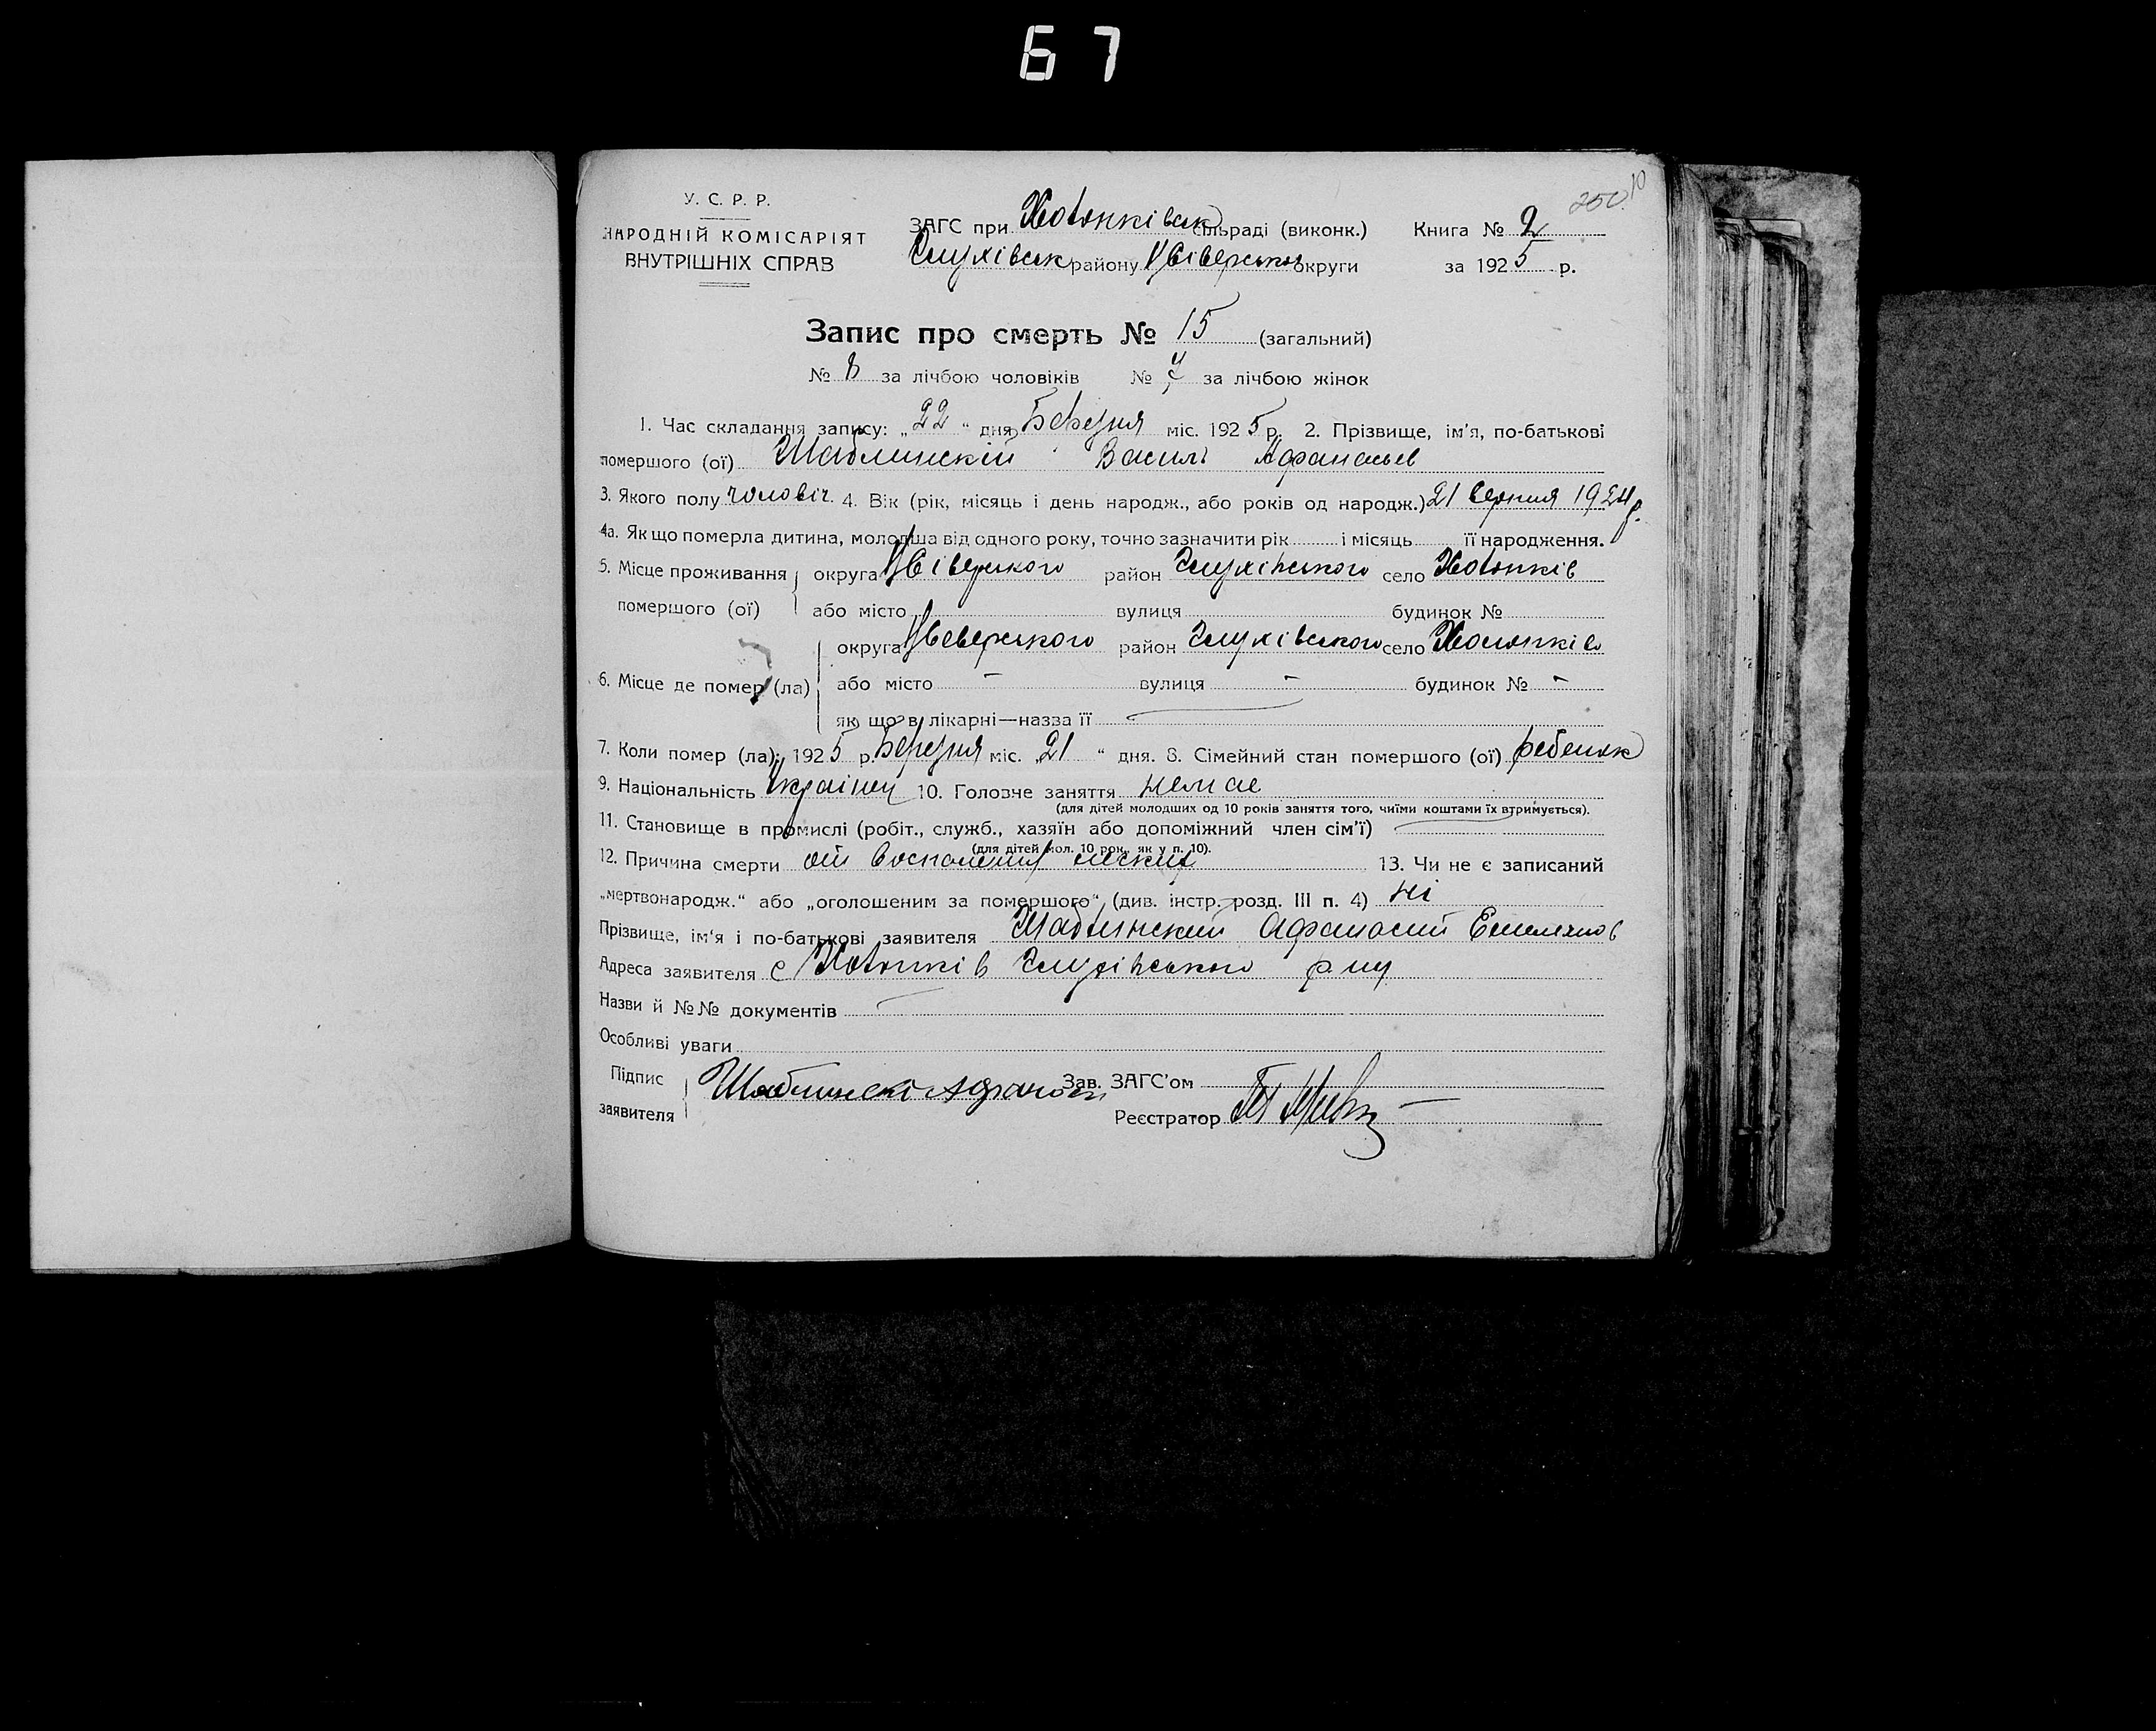 67
250. 10
У. С. Р. Р.
НАРОДНІЙ КОМІСАРІЯТ
ВНУТРІШНІХ СПРАВ
ЗАГС при Хотьнківськ сільраді (виконк.) Книга № 2
району округи за 1925 р.
Запис про смерть № 15 (загальний)
№ 8 за лічбою чоловіків № 7 за лічбою жінок
1. Час складання запису: „22“ дня Березня міс. 1925 р. 2. Прізвище, ім'я, по-батькові
помершого (ої) Шаблинскій Василь Афанасьев
3. Якого полу чоловіч. 4. Вік (рік, місяць і день народж., або років од народж.) 21 серпня 1924 р.
4а. Як що померла дитина, молодша від одного року, точно зазначити рік і місяць її народження.
5. Місце проживання округа район село
помершого (ої) або місто вулиця будинок №
округа район село
6. Місце де помер (ла) або місто – вулиця – будинок № –
як що в лікарні—назва її
7. Коли помер (ла): 1925 р. Березня міс. „21“ дня. 8. Сімейний стан помершого (ої) ребенок
9. Національність Українец 10. Головче заняття немає
(для дітей молодших од 10 років заняття того, чиїми коштами їх втримується).
11. Становище в промислі (робіт., служб., хазяїн або допоміжний член сім'ї)
(для дітей мол. 10 рок., як у п. 10).
12. Причина смерти от 13. Чи не є записаний
„мертвонародж.“ або „оголошеним за помершого“ (див. інстр. розд. III п. 4) ні
Прізвище, ім'я і по-батькові заявителя Шаблинский Афанасий Емельянов
Адреса заявителя с
Назви й №№ документів
Особливі уваги
Підпис Шаблинскі Афанасі Зав. ЗАГС'ом
заявителя Реєстратор